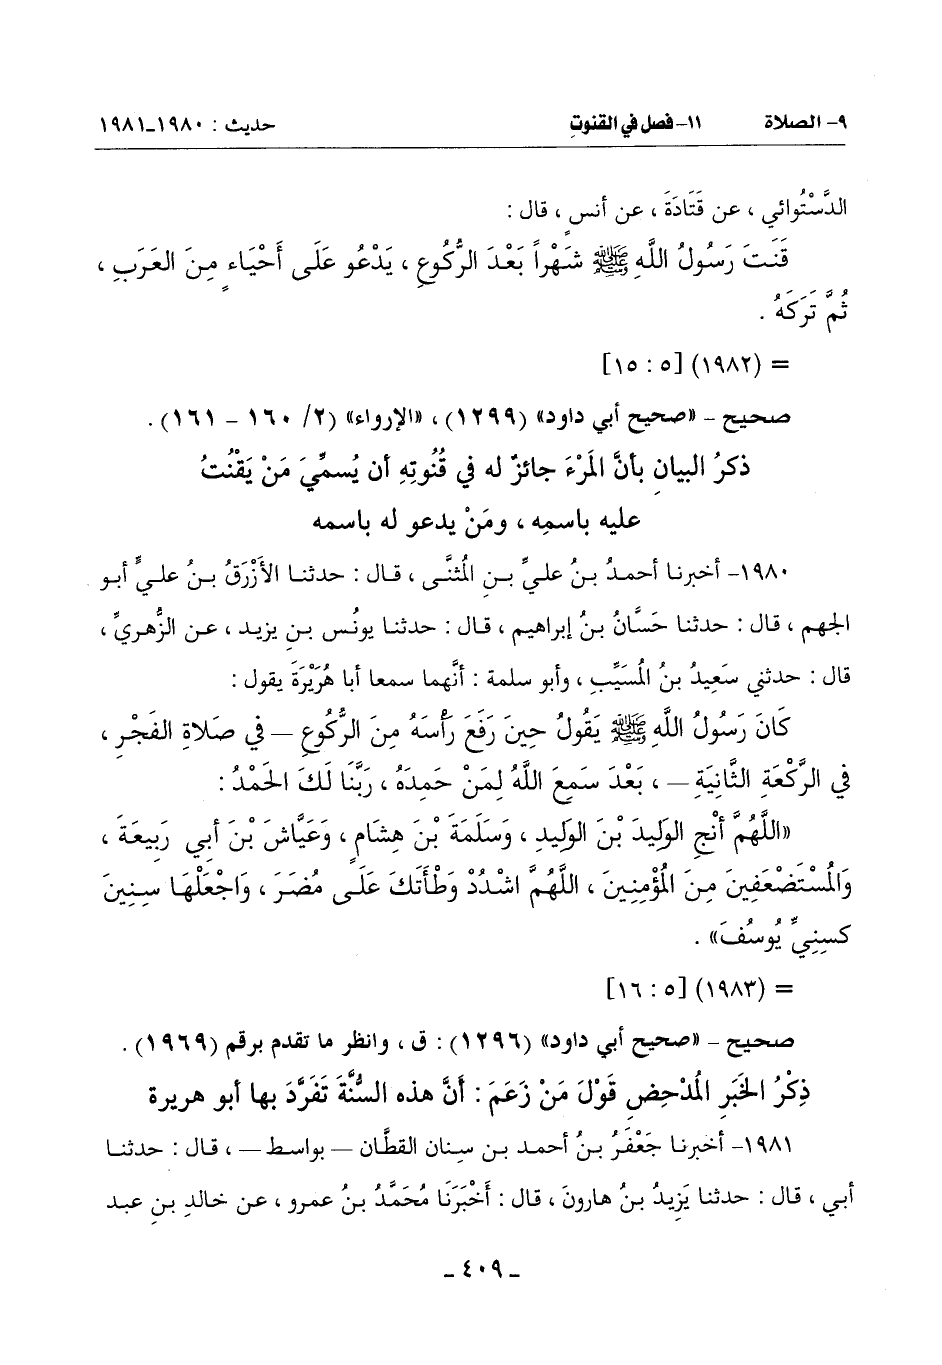 ٩- الصلاة ١١- فصل في القنوتِ حديث : ١٩٨٠-١٩٨١
الدَّسْتُوائي ، عن قَتَادَةَ ، عن أنسٍ ، قال :
قَنَتَ رَسُولُ اللَّهِ ﷺ شَهْراً بَعْدَ الرُّكُوعِ ، يَدْعُو عَلَى أَحْيَاءٍ مِنَ العَرَبِ ،
ثُمَّ تَرَكَهُ .
= (١٩٨٢) [٥ : ١٥]
صحيح - «صحيح أبي داود» (١٢٩٩) ، «الإرواء» (٢/ ١٦٠ - ١٦١) .
ذكرُ البيانِ بأنَّ المَرْءَ جائزٌ له في قُنُوتِهِ أن يُسمِّيَ مَنْ يَقْنُتُ
عليه باسمِه ، ومَنْ يدعو له باسمه
١٩٨٠- أخبرنا أحمدُ بنُ عليِّ بنِ المُثنَّى ، قال : حدثنا الأَزْرَقُ بنُ عليٍّ أبو
الجهم ، قال : حدثنا حَسَّانُ بنُ إبراهيم ، قال : حدثنا يونُس بن يزيد ، عن الزُّهريِّ ،
قال : حدثني سَعِيدُ بنُ المُسَيَّبِ ، وأبو سلمة : أنَّهما سمعا أبا هُرَيْرَةَ يقول :
كَانَ رَسُولُ اللَّهِ ﷺ يَقُولُ حِينَ رَفَعَ رَأْسَهُ مِنَ الرُّكُوعِ — في صَلاةِ الفَجْرِ ،
في الرَّكْعَةِ الثَّانِيَةِ — ، بَعْدَ سَمِعَ اللَّهُ لِمَنْ حَمِدَهُ ، رَبَّنَا لَكَ الحَمْدُ :
«اللَّهُمَّ أَنْجِ الوَلِيدَ بْنَ الوَلِيدِ ، وَسَلَمَةَ بْنَ هِشَامٍ ، وَعَيَّاشَ بْنَ أَبي رَبِيعَةَ ،
وَالمُسْتَضْعَفِينَ مِنَ المُؤْمِنِينَ ، اللَّهُمَّ اشْدُدْ وَطْأَتَكَ عَلَى مُضَرَ ، وَاجْعَلْهَا سِنِينَ
كسِنِيِّ يُوسُفَ» .
= (١٩٨٣) [٥ : ١٦]
صحيح - «صحيح أبي داود» (١٢٩٦) : ق ، وانظر ما تقدم برقم (١٩٦٩) .
ذِكْرُ الخَبَرِ المُدْحِضِ قَوْلَ مَنْ زَعَمَ : أنَّ هذه السُّنَّةَ تَفَرَّدَ بها أبو هريرة
١٩٨١- أخبرنا جَعْفَرُ بنُ أحمد بن سِنان القطَّان — بواسط — ، قال : حدثنا
أبي ، قال : حدثنا يَزِيدُ بنُ هارونَ ، قال : أَخْبَرَنَا مُحَمَّدُ بنُ عمرو ، عن خالدِ بنِ عبد
- ٤٠٩ -